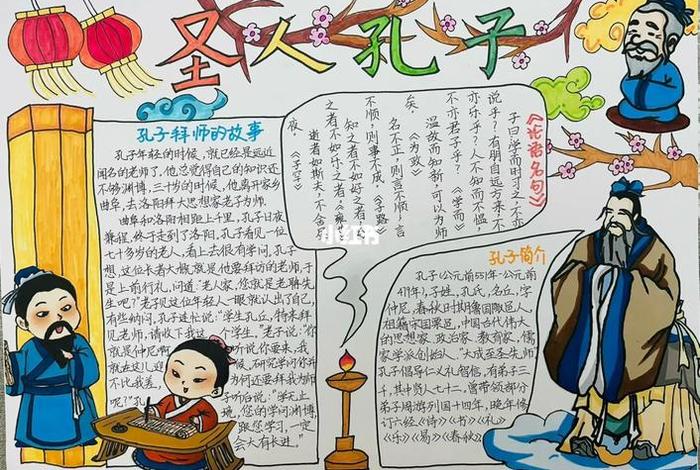 圣人孔子
孔子拜师的故事
孔子年轻的时候,就已经是远近
闻名的老师了,他总觉得自己的知识还
不够渊博,三十岁的时候,他离开家乡
曲阜,去洛阳拜大思想家老子为师。
曲阜和洛阳相距上千里,孔子日夜
兼程,终于走到了洛阳,孔子看见一位
七十多岁的老人,看上去很有学问,孔子
想,这位长者大概就是他要拜访的老师,于
是上前行礼,问道:"老人家,您就是老聃先
生吧?"老子见这位年轻人一眼就认出了自己,
有些纳闷,孔子连忙说:"学生孔丘,特来拜
见老师,请收下我这个学生。"老子说:"你
就是仲尼啊,听说你要来,我
就在这儿迎候,研究学问你并
不比我差,为何还要拜我为师
呢?"孔子听后说:"学无止
境,您的学问渊博,
跟您学习,一定
会大有长进。"
《论语名句》
子曰学而时习之不亦
说乎?有朋自远方来不
亦乐乎?人不知而不愠,
不亦君子乎?《学而》
温故而知新,可以为师
矣。《为政》
名不正,则言不顺;言
不顺,则事不成。《子路》
知之者不如好之者,好
之者不如乐之者。《雍
逝者如斯夫,不舍昼
夜。《子罕》
小红书
孔子简介
孔子(公元前551年-公元前
479年),子姓,孔氏,名丘,字
仲尼,春秋时期鲁国陬邑人,
祖籍宋国栗邑,中国古代伟大
的思想家、政治家、教育家,儒
家学派创始人、"大成至圣先师"
孔子倡导仁义礼智信,有弟子三
千,其中贤人七十二,曾带领部分
弟子周游列国十四年,晚年修
订六经《诗》《书》《礼》
《乐》《易》《春秋》